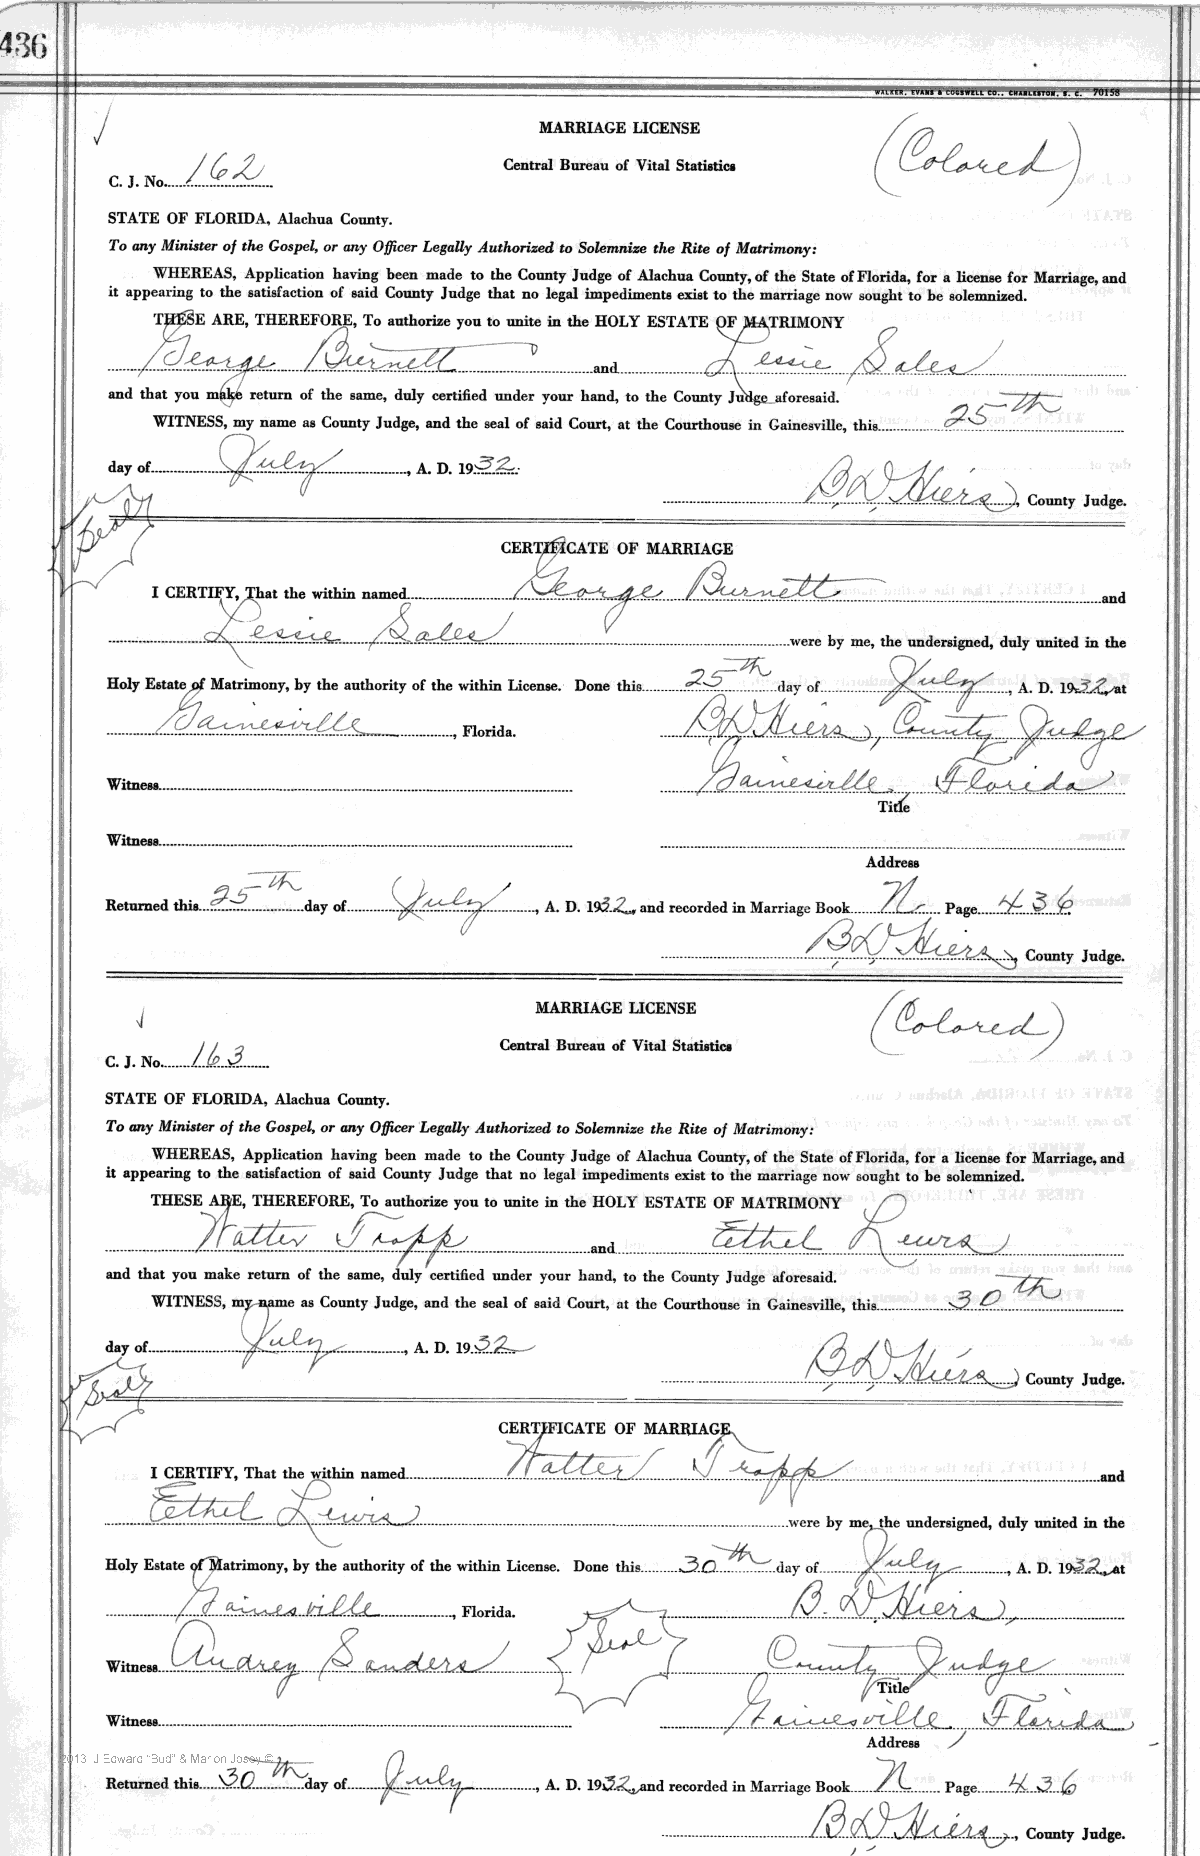 436
WALKER, EVANS & COGSWELL CO., CHARLESTON, S. C. 70158
MARRIAGE LICENSE
(Colored)
Central Bureau of Vital Statistics
C. J. No. 162
STATE OF FLORIDA, Alachua County.
To any Minister of the Gospel, or any Officer Legally Authorized to Solemnize the Rite of Matrimony:
WHEREAS, Application having been made to the County Judge of Alachua County, of the State of Florida, for a license for Marriage, and
it appearing to the satisfaction of said County Judge that no legal impediments exist to the marriage now sought to be solemnized.
THESE ARE, THEREFORE, To authorize you to unite in the HOLY ESTATE OF MATRIMONY
George Burnett and Lessie Sales
and that you make return of the same, duly certified under your hand, to the County Judge aforesaid.
WITNESS, my name as County Judge, and the seal of said Court, at the Courthouse in Gainesville, this 25th
day of July, A. D. 1932.
B. D. Hiers, County Judge.
Seal
CERTIFICATE OF MARRIAGE
I CERTIFY, That the within named George Burnett and
Lessie Sales were by me, the undersigned, duly united in the
Holy Estate of Matrimony, by the authority of the within License. Done this 25th day of July, A. D. 1932, at
Gainesville, Florida. B. D. Hiers, County Judge
Witness Gainesville, Florida
Title
Witness
Address
Returned this 25th day of July, A. D. 1932, and recorded in Marriage Book N Page 436
B. D. Hiers, County Judge.
MARRIAGE LICENSE
(Colored)
Central Bureau of Vital Statistics
C. J. No. 163
STATE OF FLORIDA, Alachua County.
To any Minister of the Gospel, or any Officer Legally Authorized to Solemnize the Rite of Matrimony:
WHEREAS, Application having been made to the County Judge of Alachua County, of the State of Florida, for a license for Marriage, and
it appearing to the satisfaction of said County Judge that no legal impediments exist to the marriage now sought to be solemnized.
THESE ARE, THEREFORE, To authorize you to unite in the HOLY ESTATE OF MATRIMONY
Walter Trapp and Ethel Lewis
and that you make return of the same, duly certified under your hand, to the County Judge aforesaid.
WITNESS, my name as County Judge, and the seal of said Court, at the Courthouse in Gainesville, this 30th
day of July, A. D. 1932
B. D. Hiers, County Judge.
Seal
CERTIFICATE OF MARRIAGE
I CERTIFY, That the within named Walter Trapp and
Ethel Lewis were by me, the undersigned, duly united in the
Holy Estate of Matrimony, by the authority of the within License. Done this 30th day of July, A. D. 1932, at
Gainesville, Florida. B. D. Hiers,
Seal
Witness Audrey Sanders County Judge
Title
Witness Gainesville, Florida
Address
2013 J Edward "Bud" & Marion Josey ©
Returned this 30th day of July, A. D. 1932, and recorded in Marriage Book N Page 436
B. D. Hiers, County Judge.